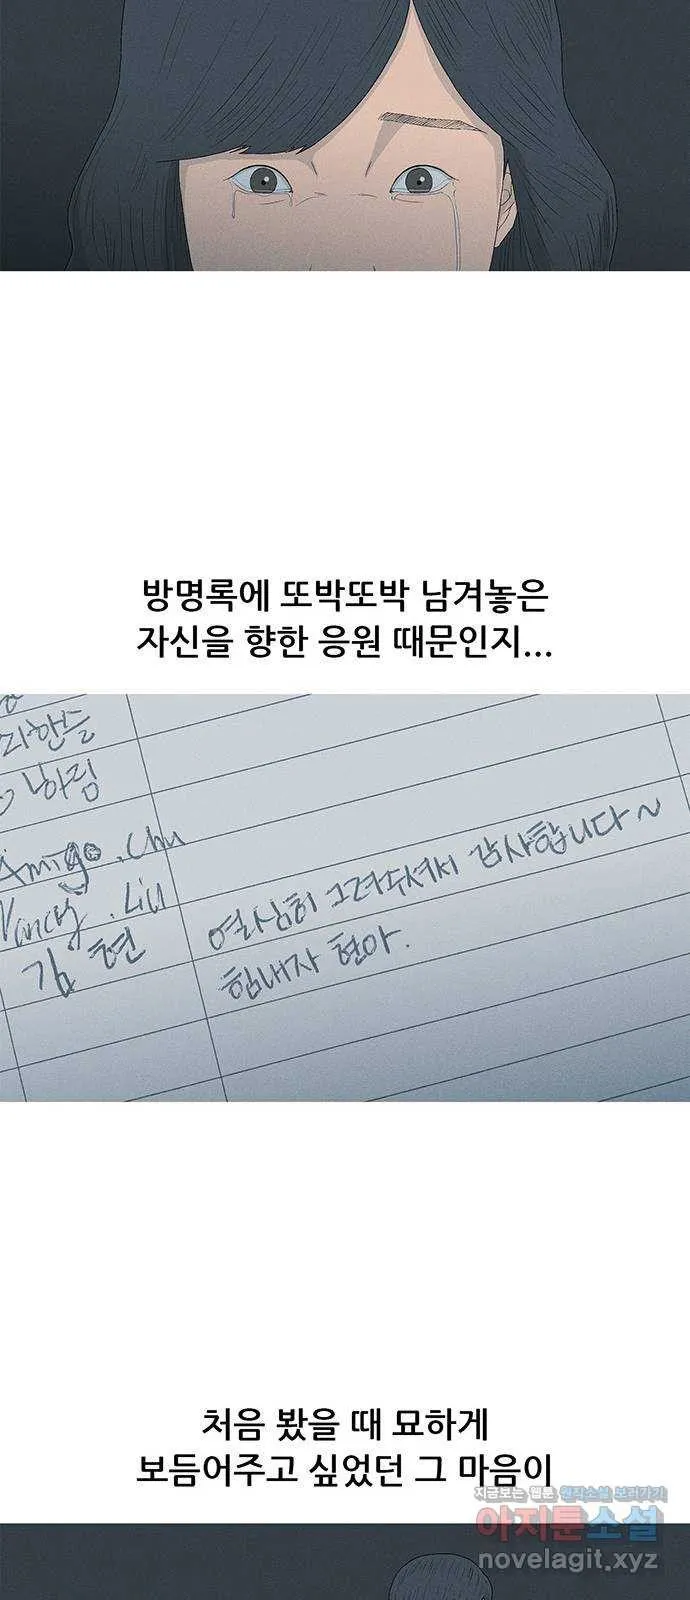 방명록에 또박또박 남겨놓은
자신을 향한 응원 때문인지...
최한늘
남하림
Amigo.Chu
Nancy.Liu
김현
열심히 그려주셔서 감사합니다~
힘내자 현아.
처음 봤을 때 묘하게
보듬어주고 싶었던 그 마음이
지금보는 웹툰 원작소설 보러가기
아지툰소설
novelagit.xyz